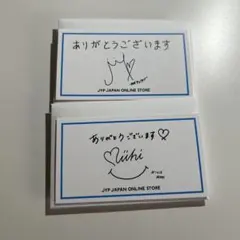 ありがとうございます
JYP JAPAN ONLINE STORE
ありがとうございます♡
Miihi
JYP JAPAN ONLINE STORE